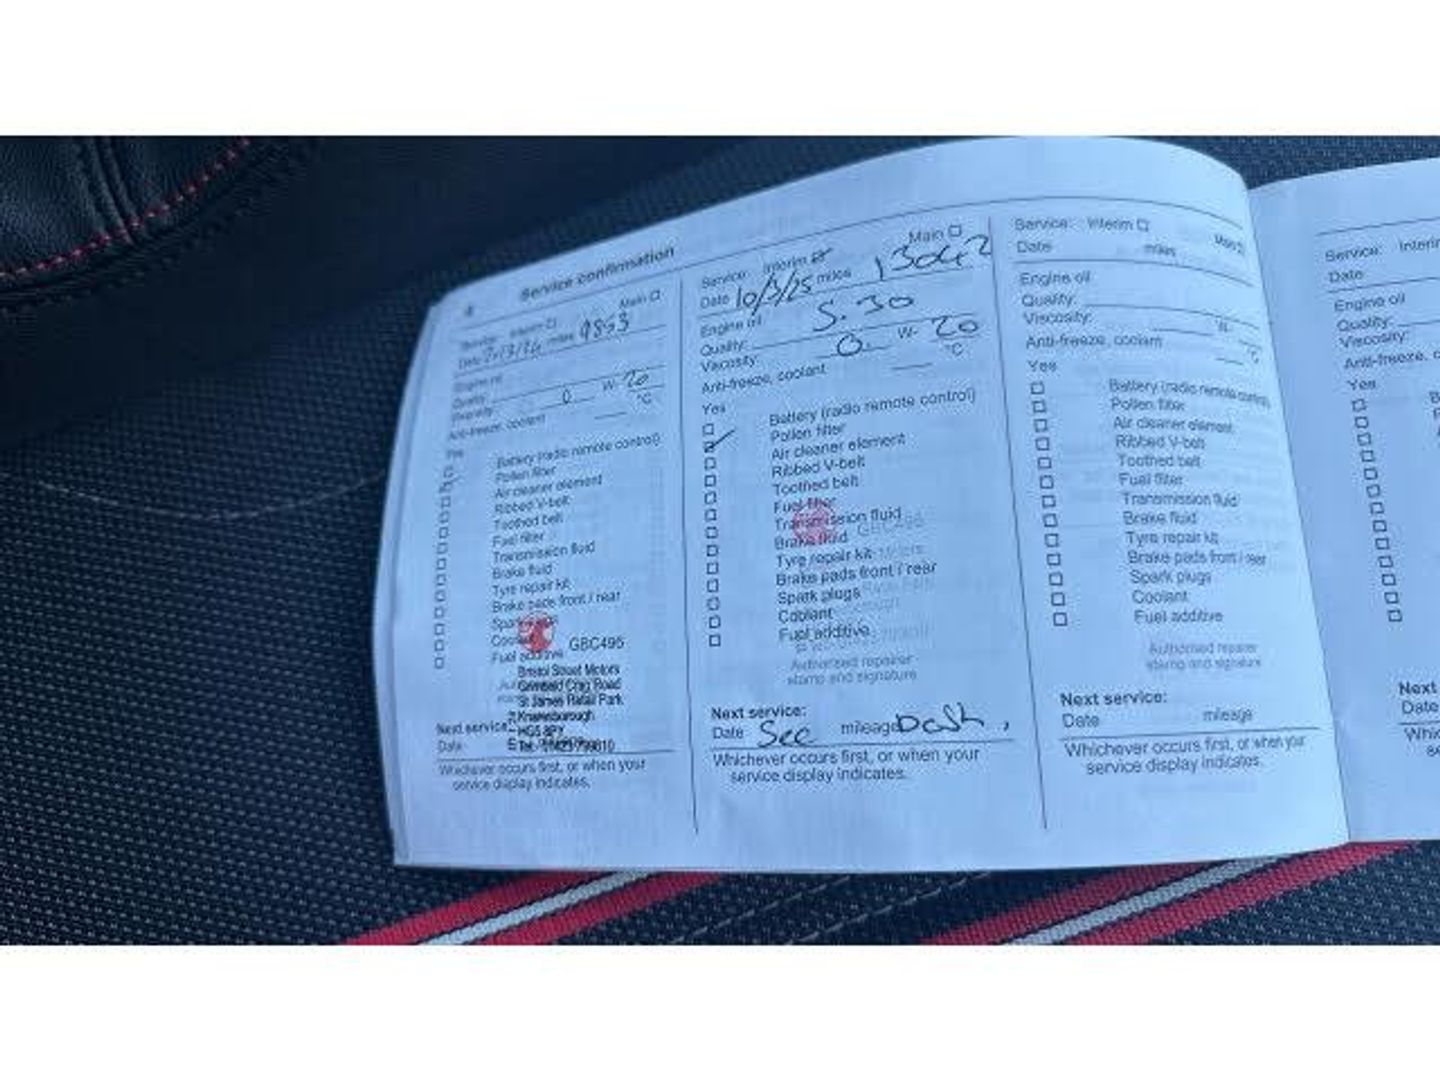 4 Service confirmation
Service: Interim Main
Date 20/3/24 miles 9853
Engine oil
Quality:
Viscosity: 0 W- 20
Anti-freeze, coolant °C
Yes
Battery (radio remote control)
Pollen filter
Air cleaner element
Ribbed V-belt
Toothed belt
Fuel filter
Transmission fluid
Brake fluid
Tyre repair kit
Brake pads front / rear
Spark plugs
Coolant
Fuel additive
GBC495
Bristol Street Motors
Grimbald Crag Road
St James Retail Park
Knaresborough
HG5 8PY
Tel:
Next service:
Date
Whichever occurs first, or when your
service display indicates.
Service: Interim Main
Date 10/3/25 miles 13042
Engine oil
Quality: S.30
Viscosity: 0. W- 20
Anti-freeze, coolant °C
Yes
Battery (radio remote control)
Pollen filter
Air cleaner element
Ribbed V-belt
Toothed belt
Fuel filter
Transmission fluid
Brake fluid
Tyre repair kit
Brake pads front / rear
Spark plugs
Coolant
Fuel additive
Authorised repairer
stamp and signature
Next service:
Date See mileage Dash,
Whichever occurs first, or when your
service display indicates.
Service: Interim Main
Date miles
Engine oil
Quality:
Viscosity: W-
Anti-freeze, coolant °C
Yes
Battery (radio remote control)
Pollen filter
Air cleaner element
Ribbed V-belt
Toothed belt
Fuel filter
Transmission fluid
Brake fluid
Tyre repair kit
Brake pads front / rear
Spark plugs
Coolant
Fuel additive
Authorised repairer
stamp and signature
Next service:
Date mileage
Whichever occurs first, or when your
service display indicates.
Service: Interim
Date
Engine oil
Quality:
Viscosity:
Anti-freeze,
Yes
Next
Date